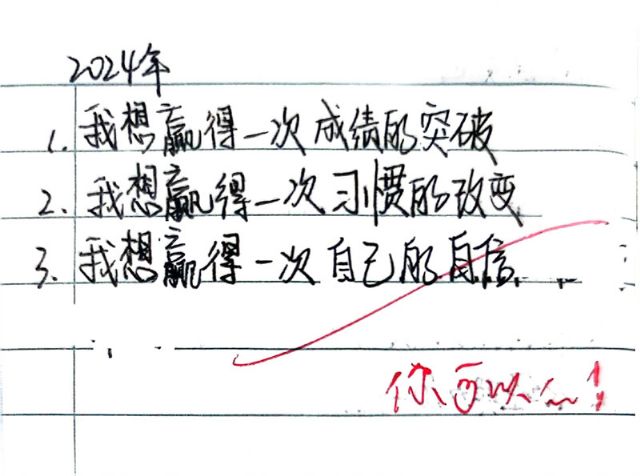 2024年
1. 我想赢得一次成绩的突破
2. 我想赢得一次习惯的改变
3. 我想赢得一次自己的自信
你可以~!